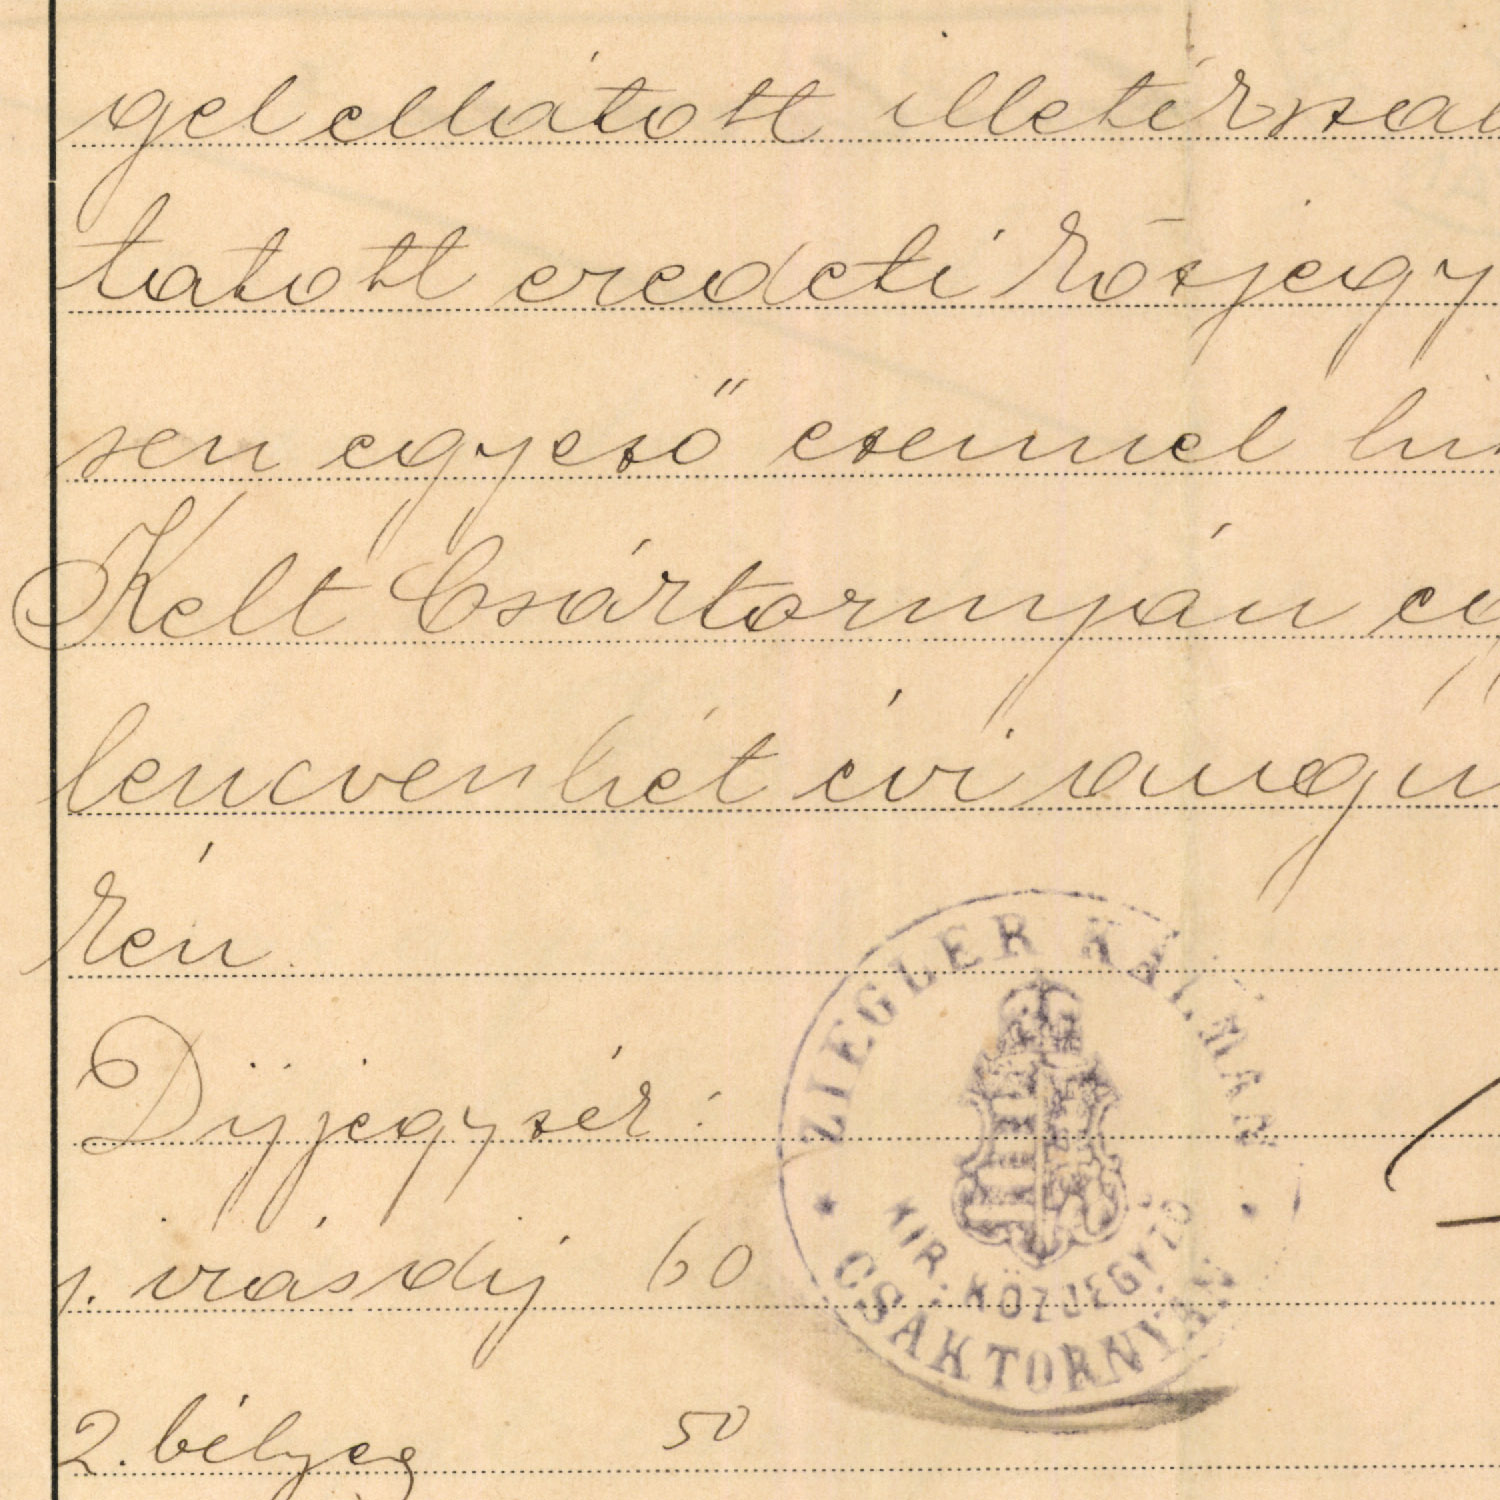 gel ellátott illetékszab
tatott eredeti közjegy
sen egyező ezennel hit
Kelt Csáktornyán
lencvenhét évi augu
kén
Díjjegyzék:
1. írásdíj 60
2. bélyeg 50
ZIEGLER KÁLMÁN
KIR. KÖZJEGYZŐ
CSÁKTORNYÁN